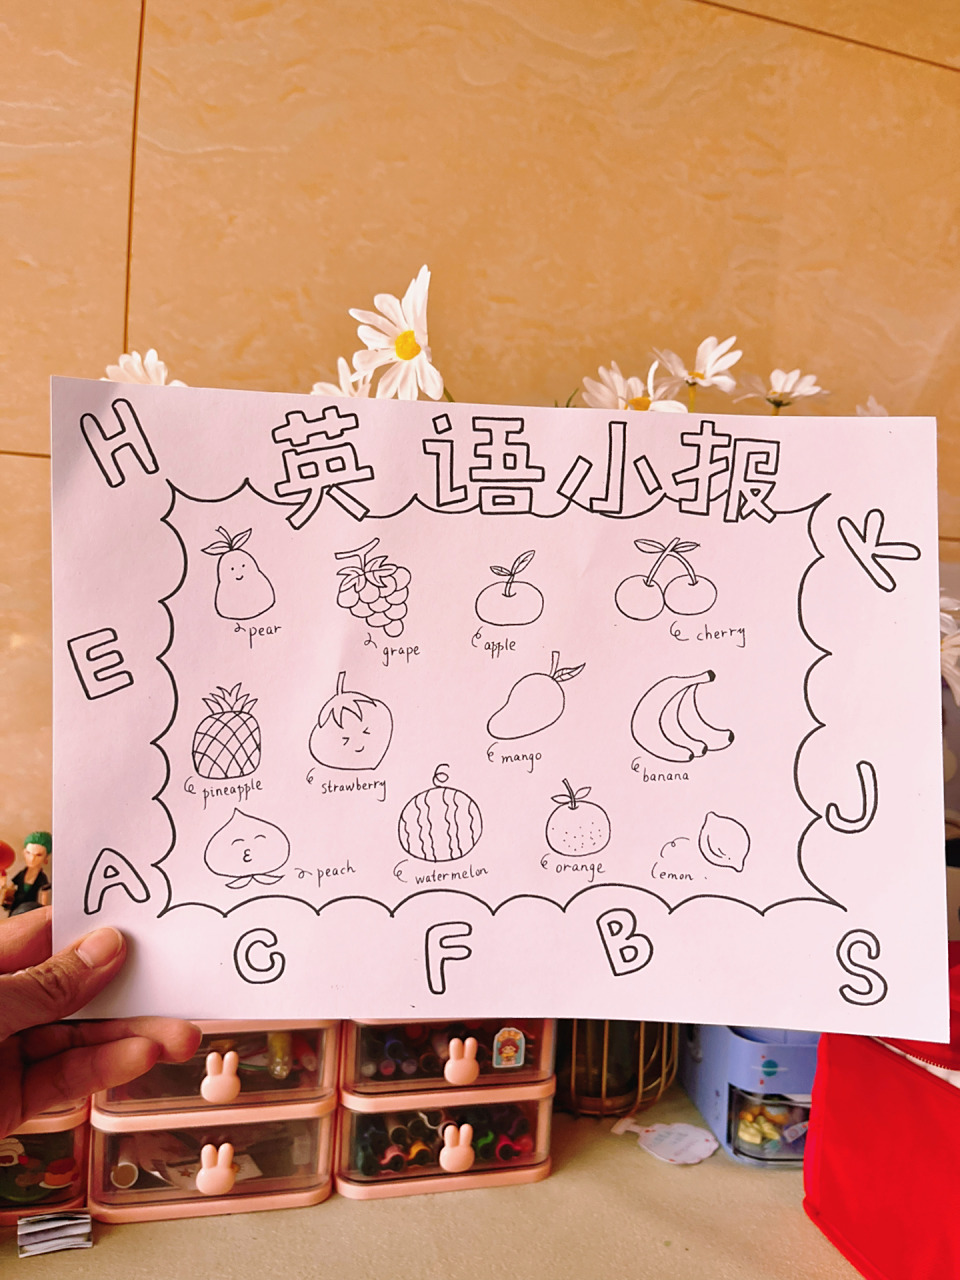 H
英语小报
K
pear
grape
apple
cherry
E
pineapple
strawberry
mango
banana
J
peach
watermelon
orange
lemon.
A
C
F
B
S